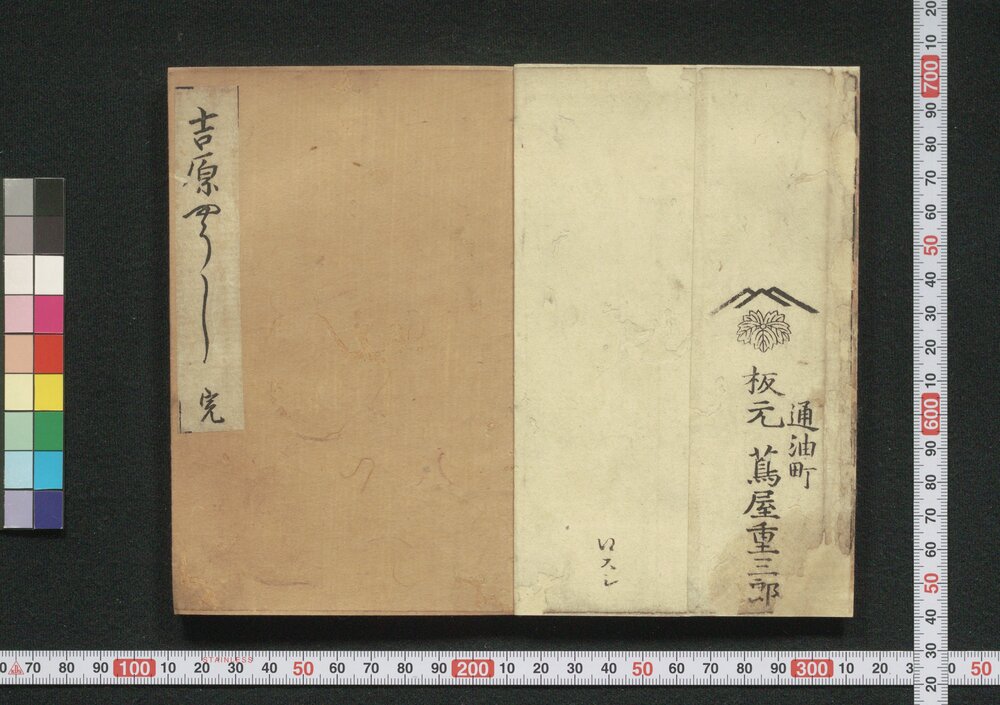 通油町
板元 蔦屋重三郎
吉原やうし 完
STAINLESS
0 70 80 90 100 10 20 30 40 50 60 70 80 90 200 10 20 30 40 50 60 70 80 90 300 10 20 3 0 50
20 10 700 90 80 70 60 50 40 30 20 10 600 90 80 70 60 50 40 30 20